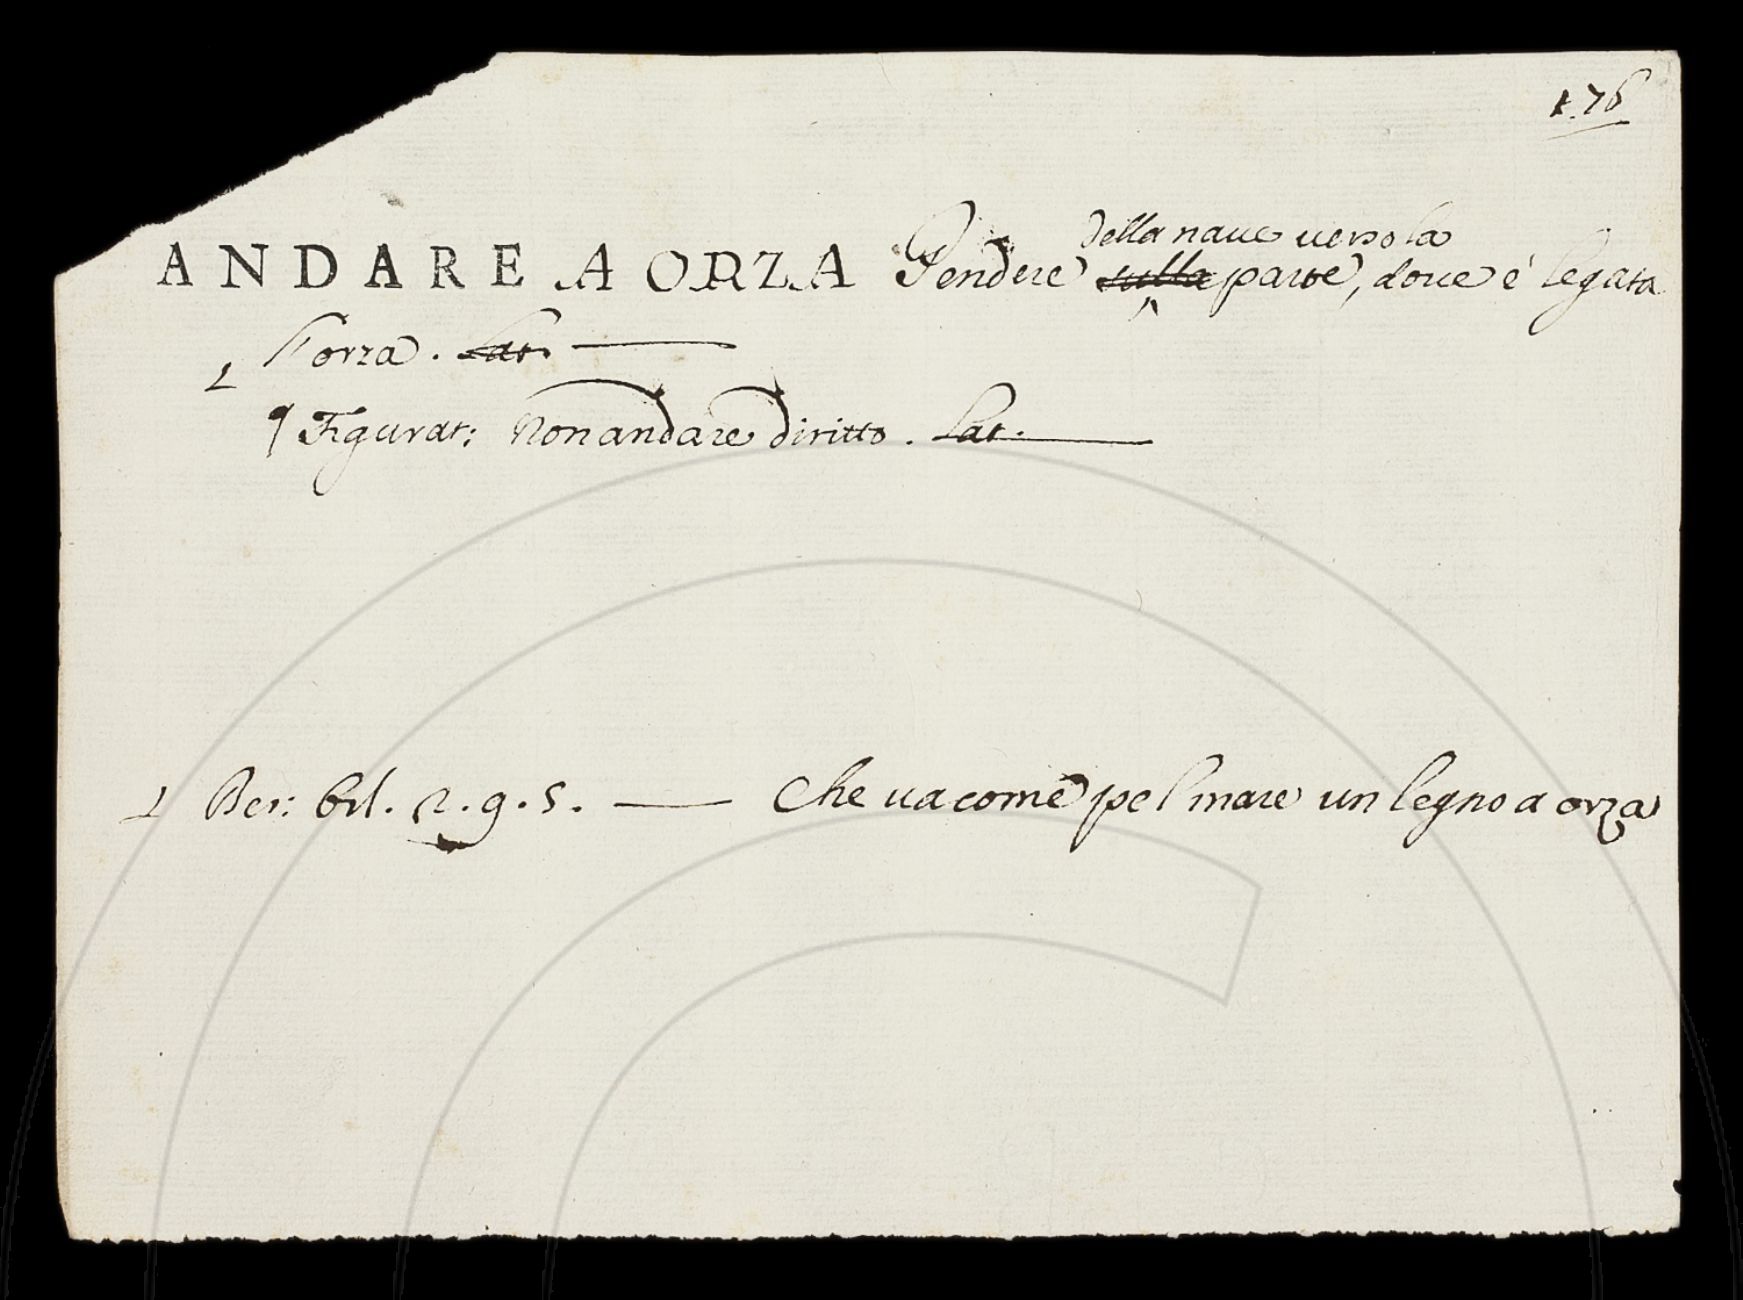 1.76
della naue uerso la
ANDARE A ORZA Pendere sulla parte, doue è legata
l'orza. Lat.
¶ Figurat: Non andare diritto. Lat.
Ber: Orl. 2.9.5. — Che ua come pel mare un legno a orza